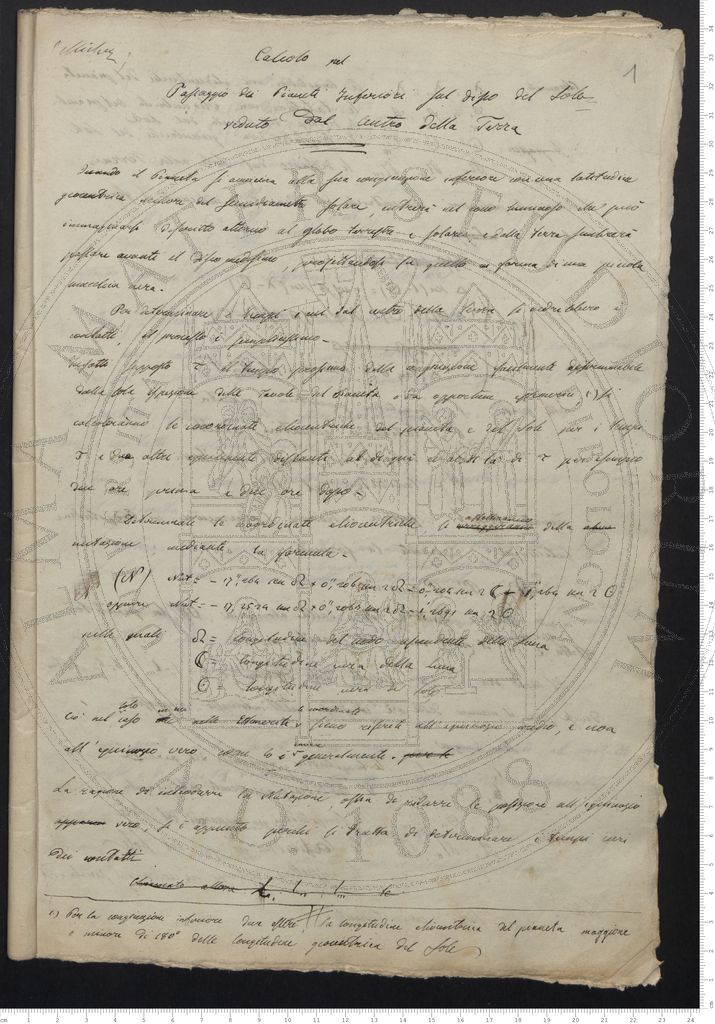 (Michez)
1
Calcolo nel
Passaggio dei Pianeti Inferiori sul disco del Sole
veduto dal centro della Terra
Quando il Pianeta si avvicina alla sua congiunzione inferiore con una latitudine
geocentrica minore del semidiametro solare, entrerà nel cono luminoso che può
immaginarsi disposto attorno al globo terrestre e solare e dalla terra sembrerà
passare avanti il disco medesimo, proiettandosi su quello in forma di una piccola
macchia nera.
Per determinare i tempi in cui dal centro della terra si vedrebbero i
contatti, il processo è semplicissimo.
Infatti supposto τ il tempo prossimo della congiunzione facilmente determinabile
dalla sola ispezione delle tavole del pianeta o da opportune effemeridi 1) si
calcoleranno le coordinate eliocentriche del pianeta e del Sole per i tempi
τ e due altri equidistanti al di qui e al di là di τ per esempio
due ore prima e due ore dopo.
Determinate le coordinate eliocentriche si della
nutazione mediante la formula.
(N) Nut = - 17",264 sen ☊ + 0",206 sen 2☊ - 0",204 sen 2☾ - 1",264 sen 2☉
oppure Nut = - 17, 2524 sen ☊ + 0",2063 sen 2☊ - 1",2691 sen 2☉
nelle quali ☊ = longitudine del nodo ascendente della Luna
☾ = longitudine vera della luna
☉ = longitudine vera del sole
Ciò nel solo caso in cui nelle effemeridi le coordinate siano riferite all'equinozio medio, e non
all'equinozio vero come lo è generalmente.
La ragione di introdurre la Nutazione, ossia di ridurre le posizioni all'equinozio
vero, si è appunto perché si tratta di determinare i tempi veri
dei contatti
Chiamato allora t, t, t,
1) Per la congiunzione inferiore deve essere la longitudine eliocentrica del pianeta maggiore
o minore di 180° della longitudine geocentrica del Sole